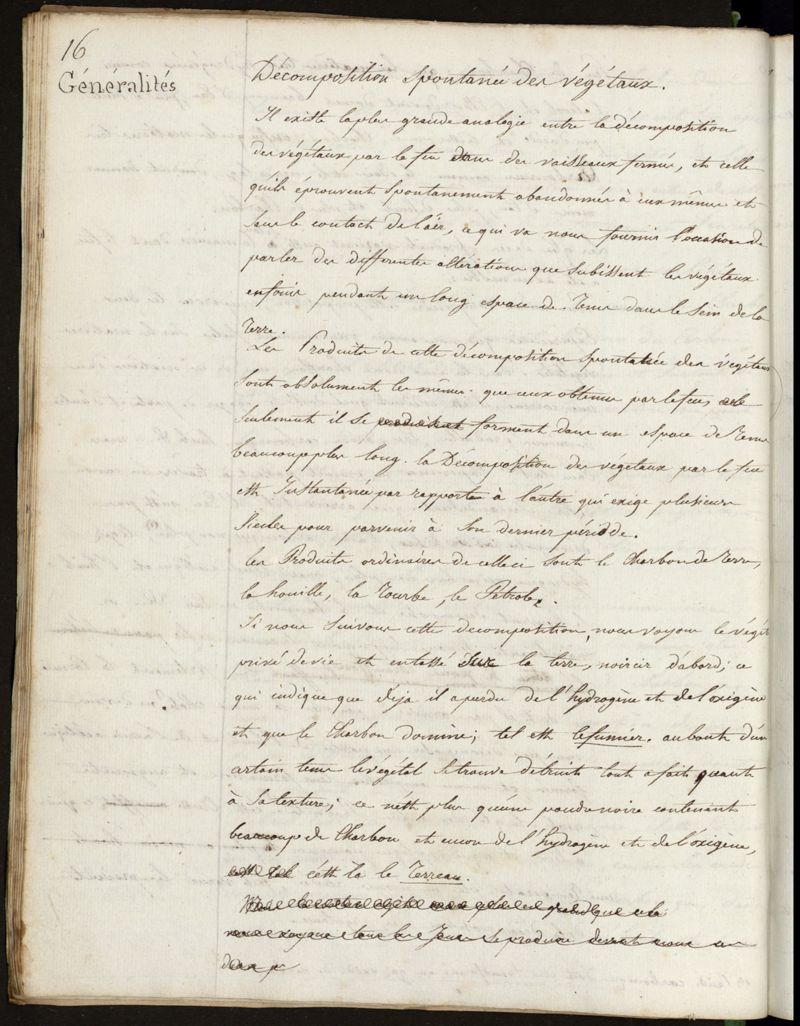 16
Généralités
Décomposition spontanée des végétaux.
Il existe la plus grande analogie entre la décomposition
des végétaux par le feu dans des vaisseaux fermés, et celle
qu'ils éprouvent spontanement abandonnés à eux mêmes et
sous le contact de l'air, ce qui va nous fournir l'occasion de
parler des differentes altérations que subissent les végétaux
enfouis pendant un long espace de tems dans le sein de la
terre.
Les Produits de cette décomposition spontanée des végétaux
sont absolument les mêmes que ceux obtenus par le feu,
seulement il se produisent forment dans un espace de tems
beaucoup plus long. la Décomposition des végétaux par le feu
est Instantanée par rapport à l'autre qui exige plusieurs
siecles pour parvenir à son dernier période.
les Produits ordinaires de celle ci sont le Charbon de terre,
la houille, la tourbe, le Pétrole.
Si nous suivons cette décomposition, nous voyons le végét
privé de vie et entassé sur la terre, noircir d'abord; ce
qui indique que déja il a perdu de l'hydrogène et de l'oxigène
et que le Charbon domine; tel est le fumier. au bout d'un
certain tems le végétal se trouve détruit tout a fait quant
à sa texture; ce n'est plus qu'une poudre noire contenant
beaucoup de Charbon et encore de l'hydrogène et de l'oxigène,
c'est là le Terreau.
nous voyons tous les jours se produire devant nous